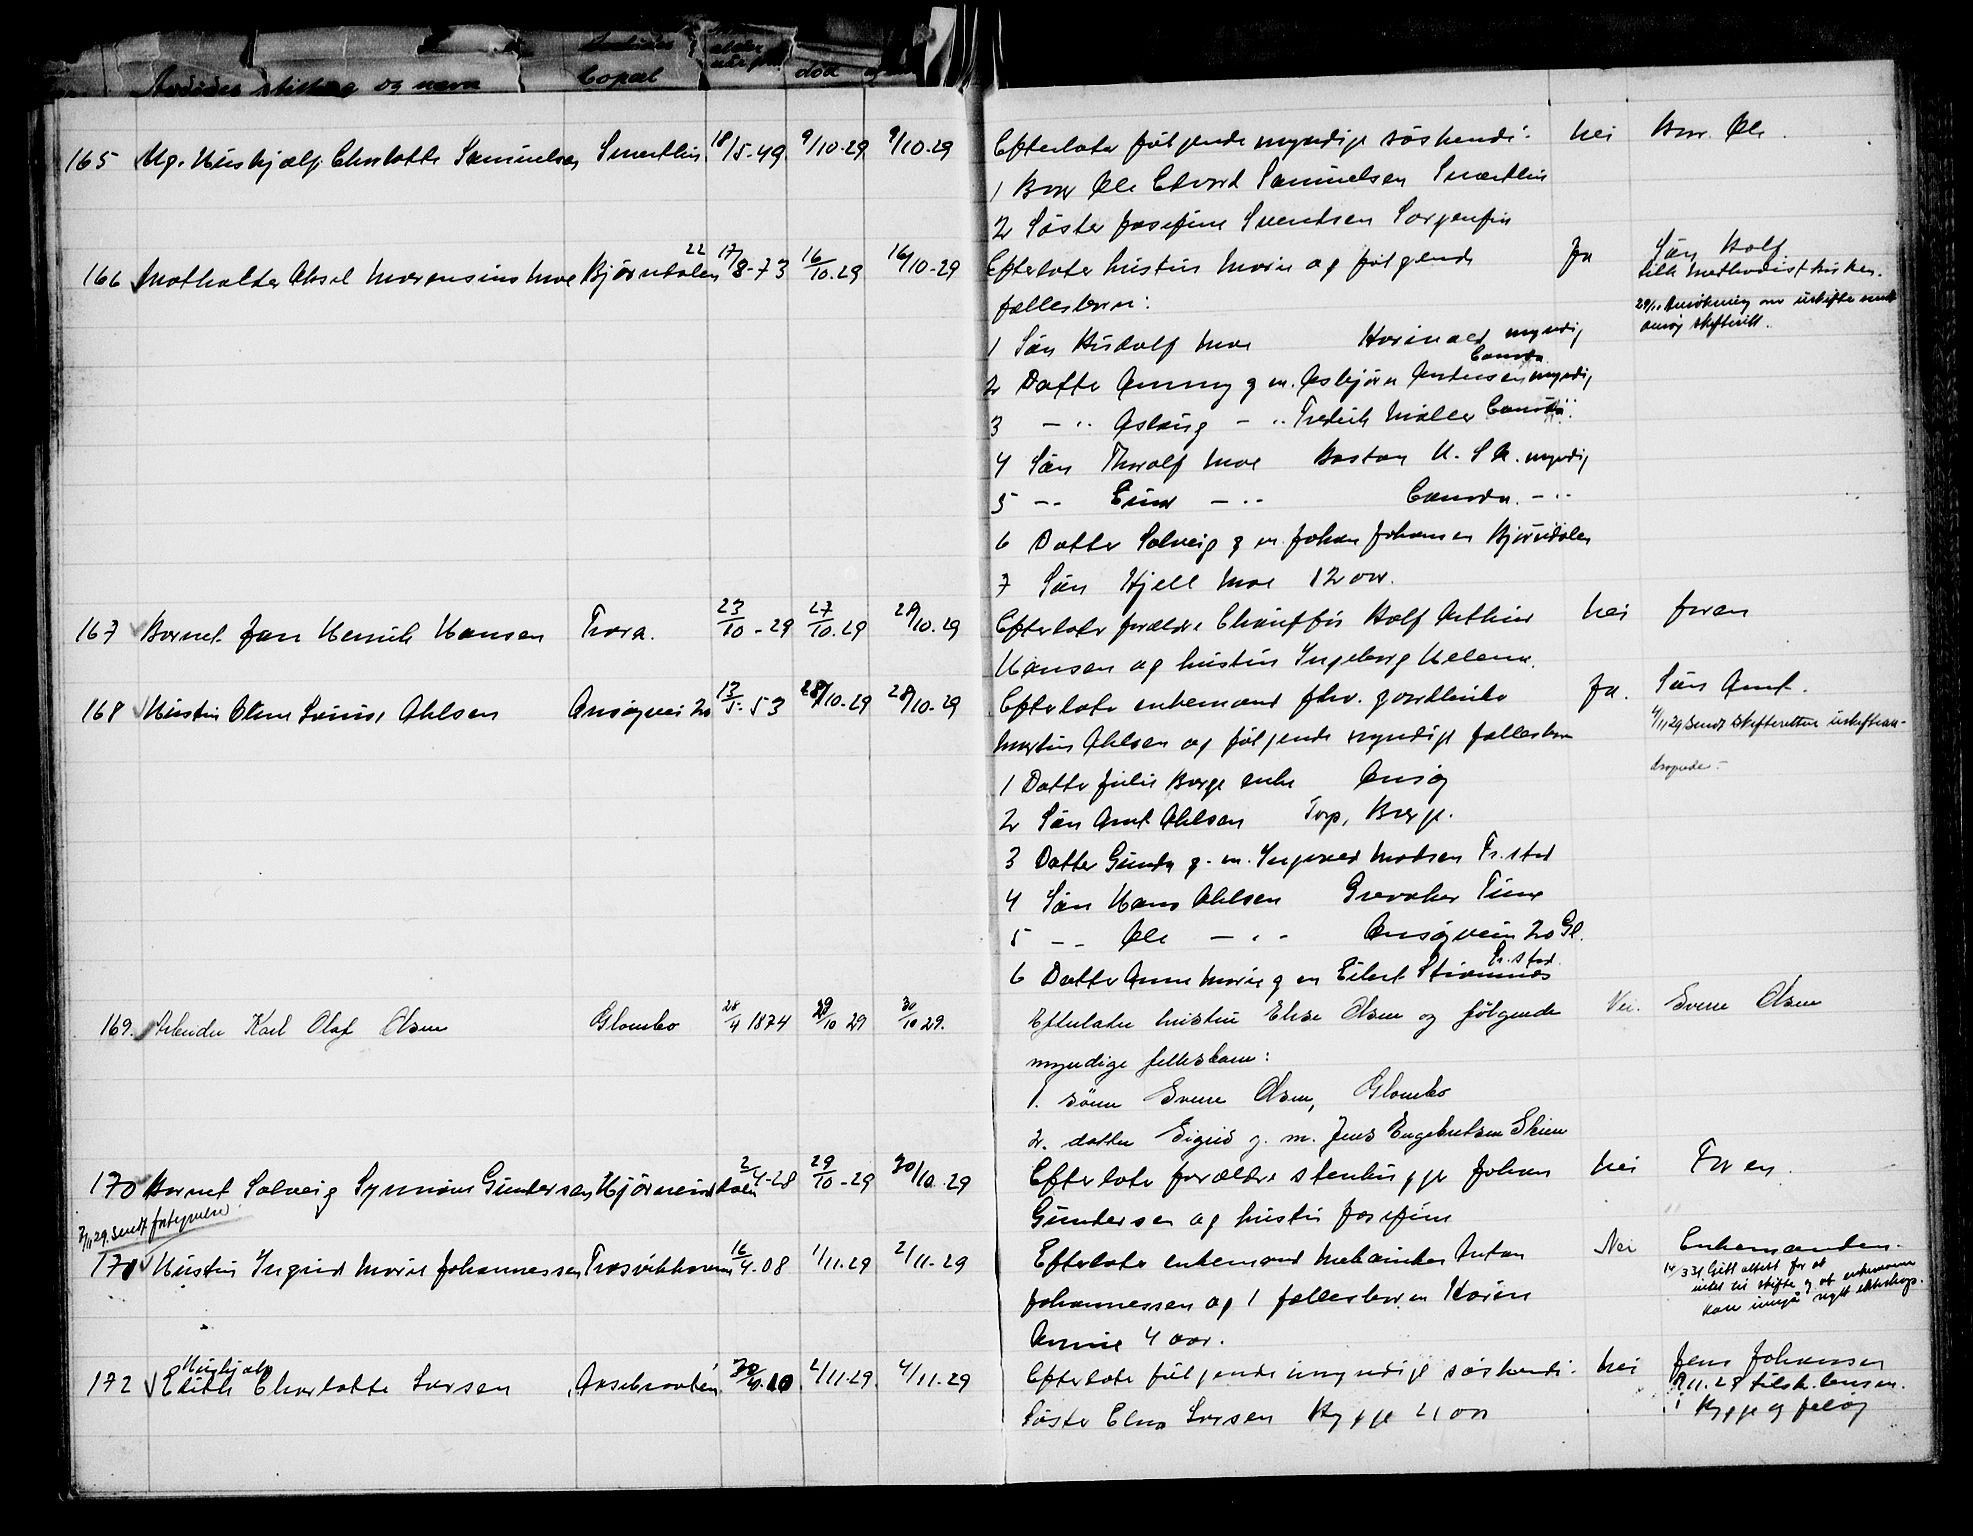 Avdødes stilling og navn
Bopæl
død
165 Ug. Hushjælp Charlotte Samuelsen Smertlin 18/5-49 9/10-29 9/10-29 Efterlater følgende myndige søskende: nei Bror Ole.
1 Bror Ole Edvard Samuelsen Smertlin
2 Søster Josefine Svendsen Sorgenfri
166 Aksel Marensius Moe Bjørndalen 22 17/8-73 16/10-29 16/10-29 Efterlater hustru Marie og følgende ja Søn Rolf
tilh Methodistkirken.
fællesbarn:
29/11 Ansökning om uskifte sendt
Onsøy skifterett.
1 Søn Rudolf Moe myndig
2 Datter Anny g m. Asbjørn Andersen Canada myndig
3 — " Aslaug — " Fredrik Møller Canada "
4 Søn Thoralf Moe Boston U.S.A. myndig
5 — " Einar — " Canada — "
6 Datter Solveig g m. Johan Johansen Bjørndalen
7 Søn Kjell Moe 12 aar.
167 Barnet Jan Henrik Hansen Trara. 23/10-29 27/10-29 28/10-29 Efterlater forældre Chauffør Rolf Arthur nei faren
Hansen og hustru Ingeborg Helene.
168 Hustru Oline Louise Ahlsen Onsøyvei 20 13/5-53 28/10-29 28/10-29 Efterlater enkemand fhv. gaardbruker ja. Søn Arnt.
4/11 29 Sendt skifteretten uskiftean-
Martin Ahlsen og følgende myndige fællesbarn
1 Datter Julie Borge enke Onsøy
2 Søn Arnt Ahlsen Torp, Borge.
3 Datter Gunda g. m. Ingvard Madsen Fr.stad
4 Søn Hans Ahlsen Greaaker Tune
5 — " Ole — " — Onsøyveien 20 Gl.
6 Datter Anne Marie g m Eilert Strømnæs Fr.stad.
169. Arbeider Karl Olaf Olsen Glombo 28/4 1874 29/10 29 30/10 29. Efterlater hustru Elise Olsen og følgende Nei. Sverre Olsen
myndige fellesbarn:
1. sönn Sverre Olsen, Glombo
2. datter Sigrid g. m. Jens Engebretsen Skien
170 Barnet Solveig Synnøve Gundersen Bjørneindalen 2/4-28 29/10-29 30/10-29 Efterlater forældre stenhugger Johan nei Faren.
Gundersen og hustru Josefine
7/11 29. Sendt fortegnelse
171 Hustru Ingrid Marie Johannessen Trosvikhaven 16/4-08 1/11-29 2/11-29 Efterlater enkemand Mekaniker Anton Nei Enkemanden.
14/3 31 Gitt attest for at
intet til skifte og at enkemann
kan inngå nytt ekteskap.
Johannessen og 1 fællesbarn Karin
Annie 4 aar.
172 Hushjælp Edith Charlotte Larsen Aasebraaten 30/10-10 2/11-29. 4/11-29 Efterlater følgende umyndige søskende: nei Jens Johansen
Søster Elna Larsen Rygge 21 aar
i Rygge og Jeløy